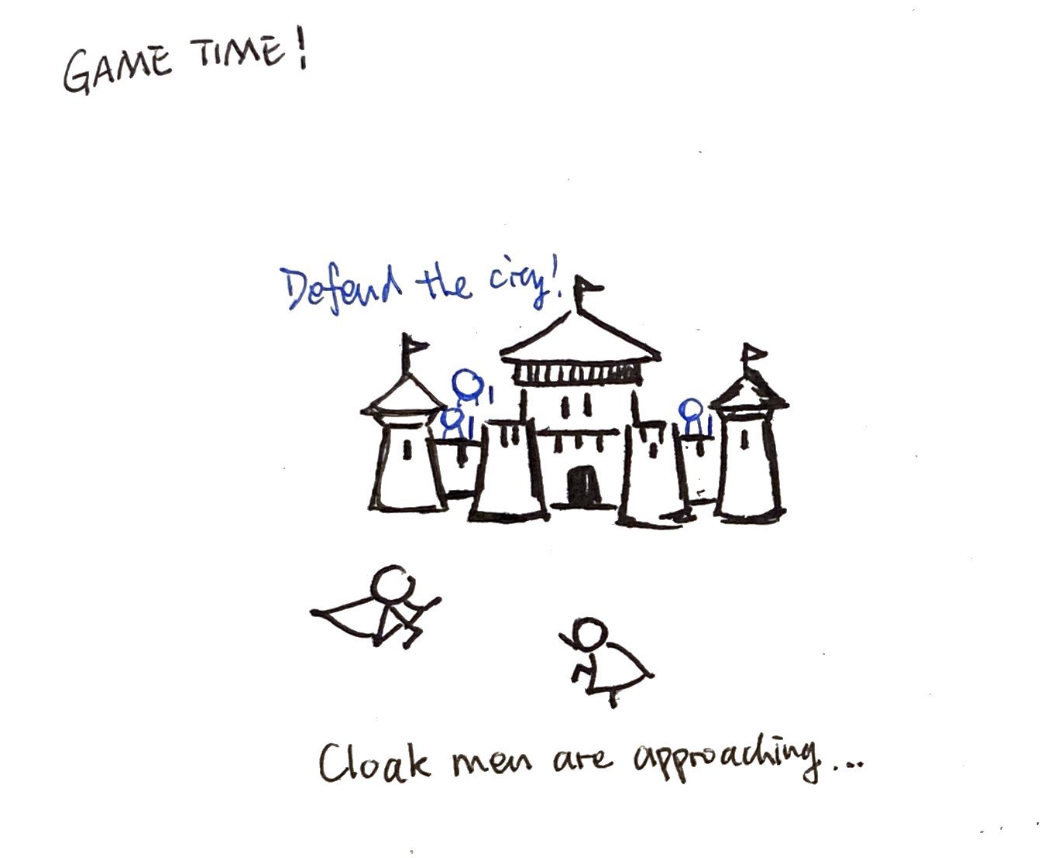 GAME TIME!
Defend the city!
Cloak men are approaching...